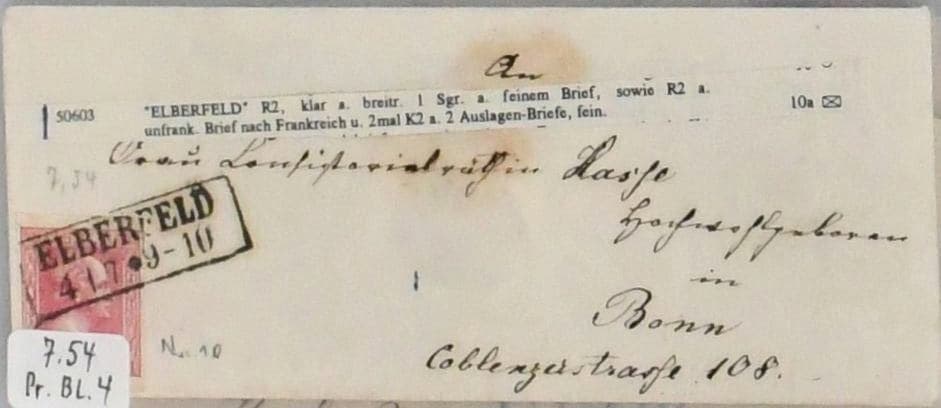 An
50603 "ELBERFELD" R2, klar a. breitr. 1 Sgr. a. feinem Brief, sowie R2 a. 10a ✉
unfrank. Brief nach Frankreich u. 2mal K2 a. 2 Auslagen-Briefe, fein.
Frau Consistorialräthin Hasse
7,54
Hochwohlgeboren
ELBERFELD
4 1.7 9-10
in
Bonn
Coblenzerstrasse 108.
No. 10
7.54
Pr. BL. 4